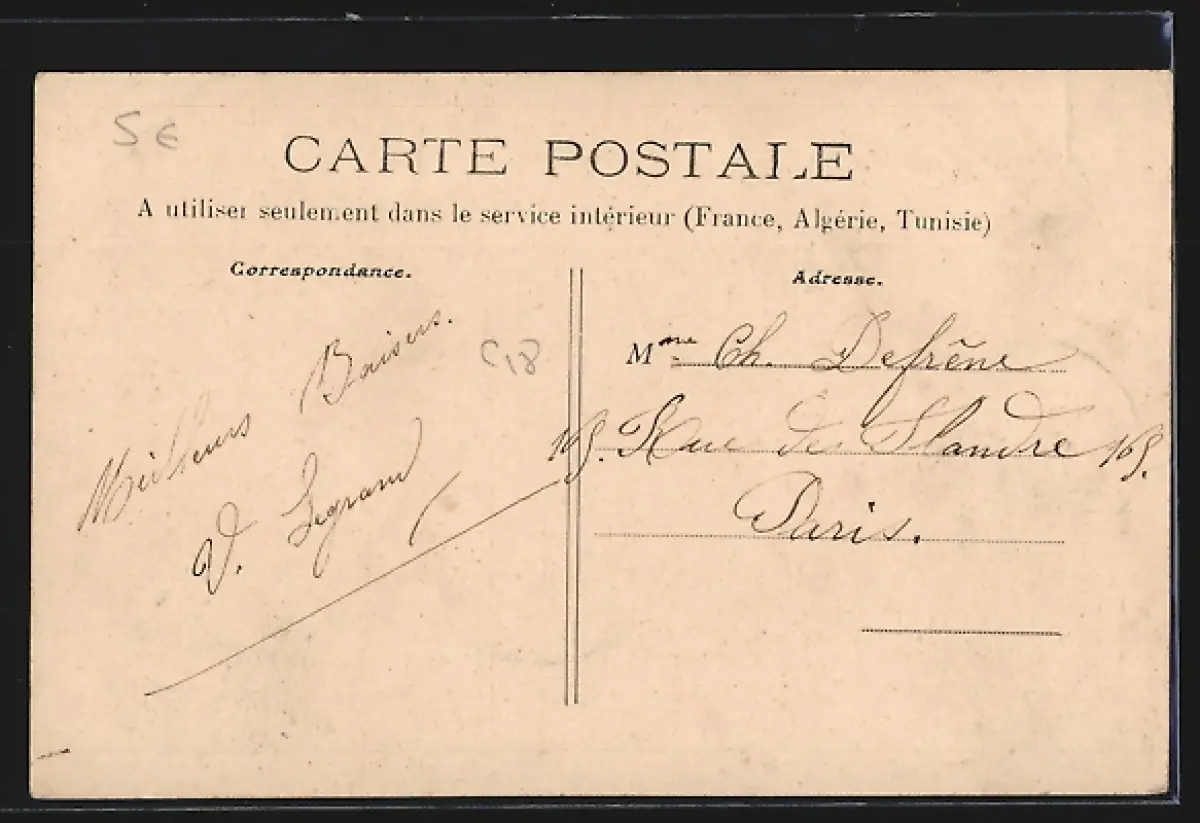 5 €
CARTE POSTALE
A utiliser seulement dans le service intérieur (France, Algérie, Tunisie)
Correspondance.
Meilleurs Baisers.
V. Legrand
C18
Adresse.
Mme Ch. Defrêne
165. Rue de Flandre 165.
Paris.